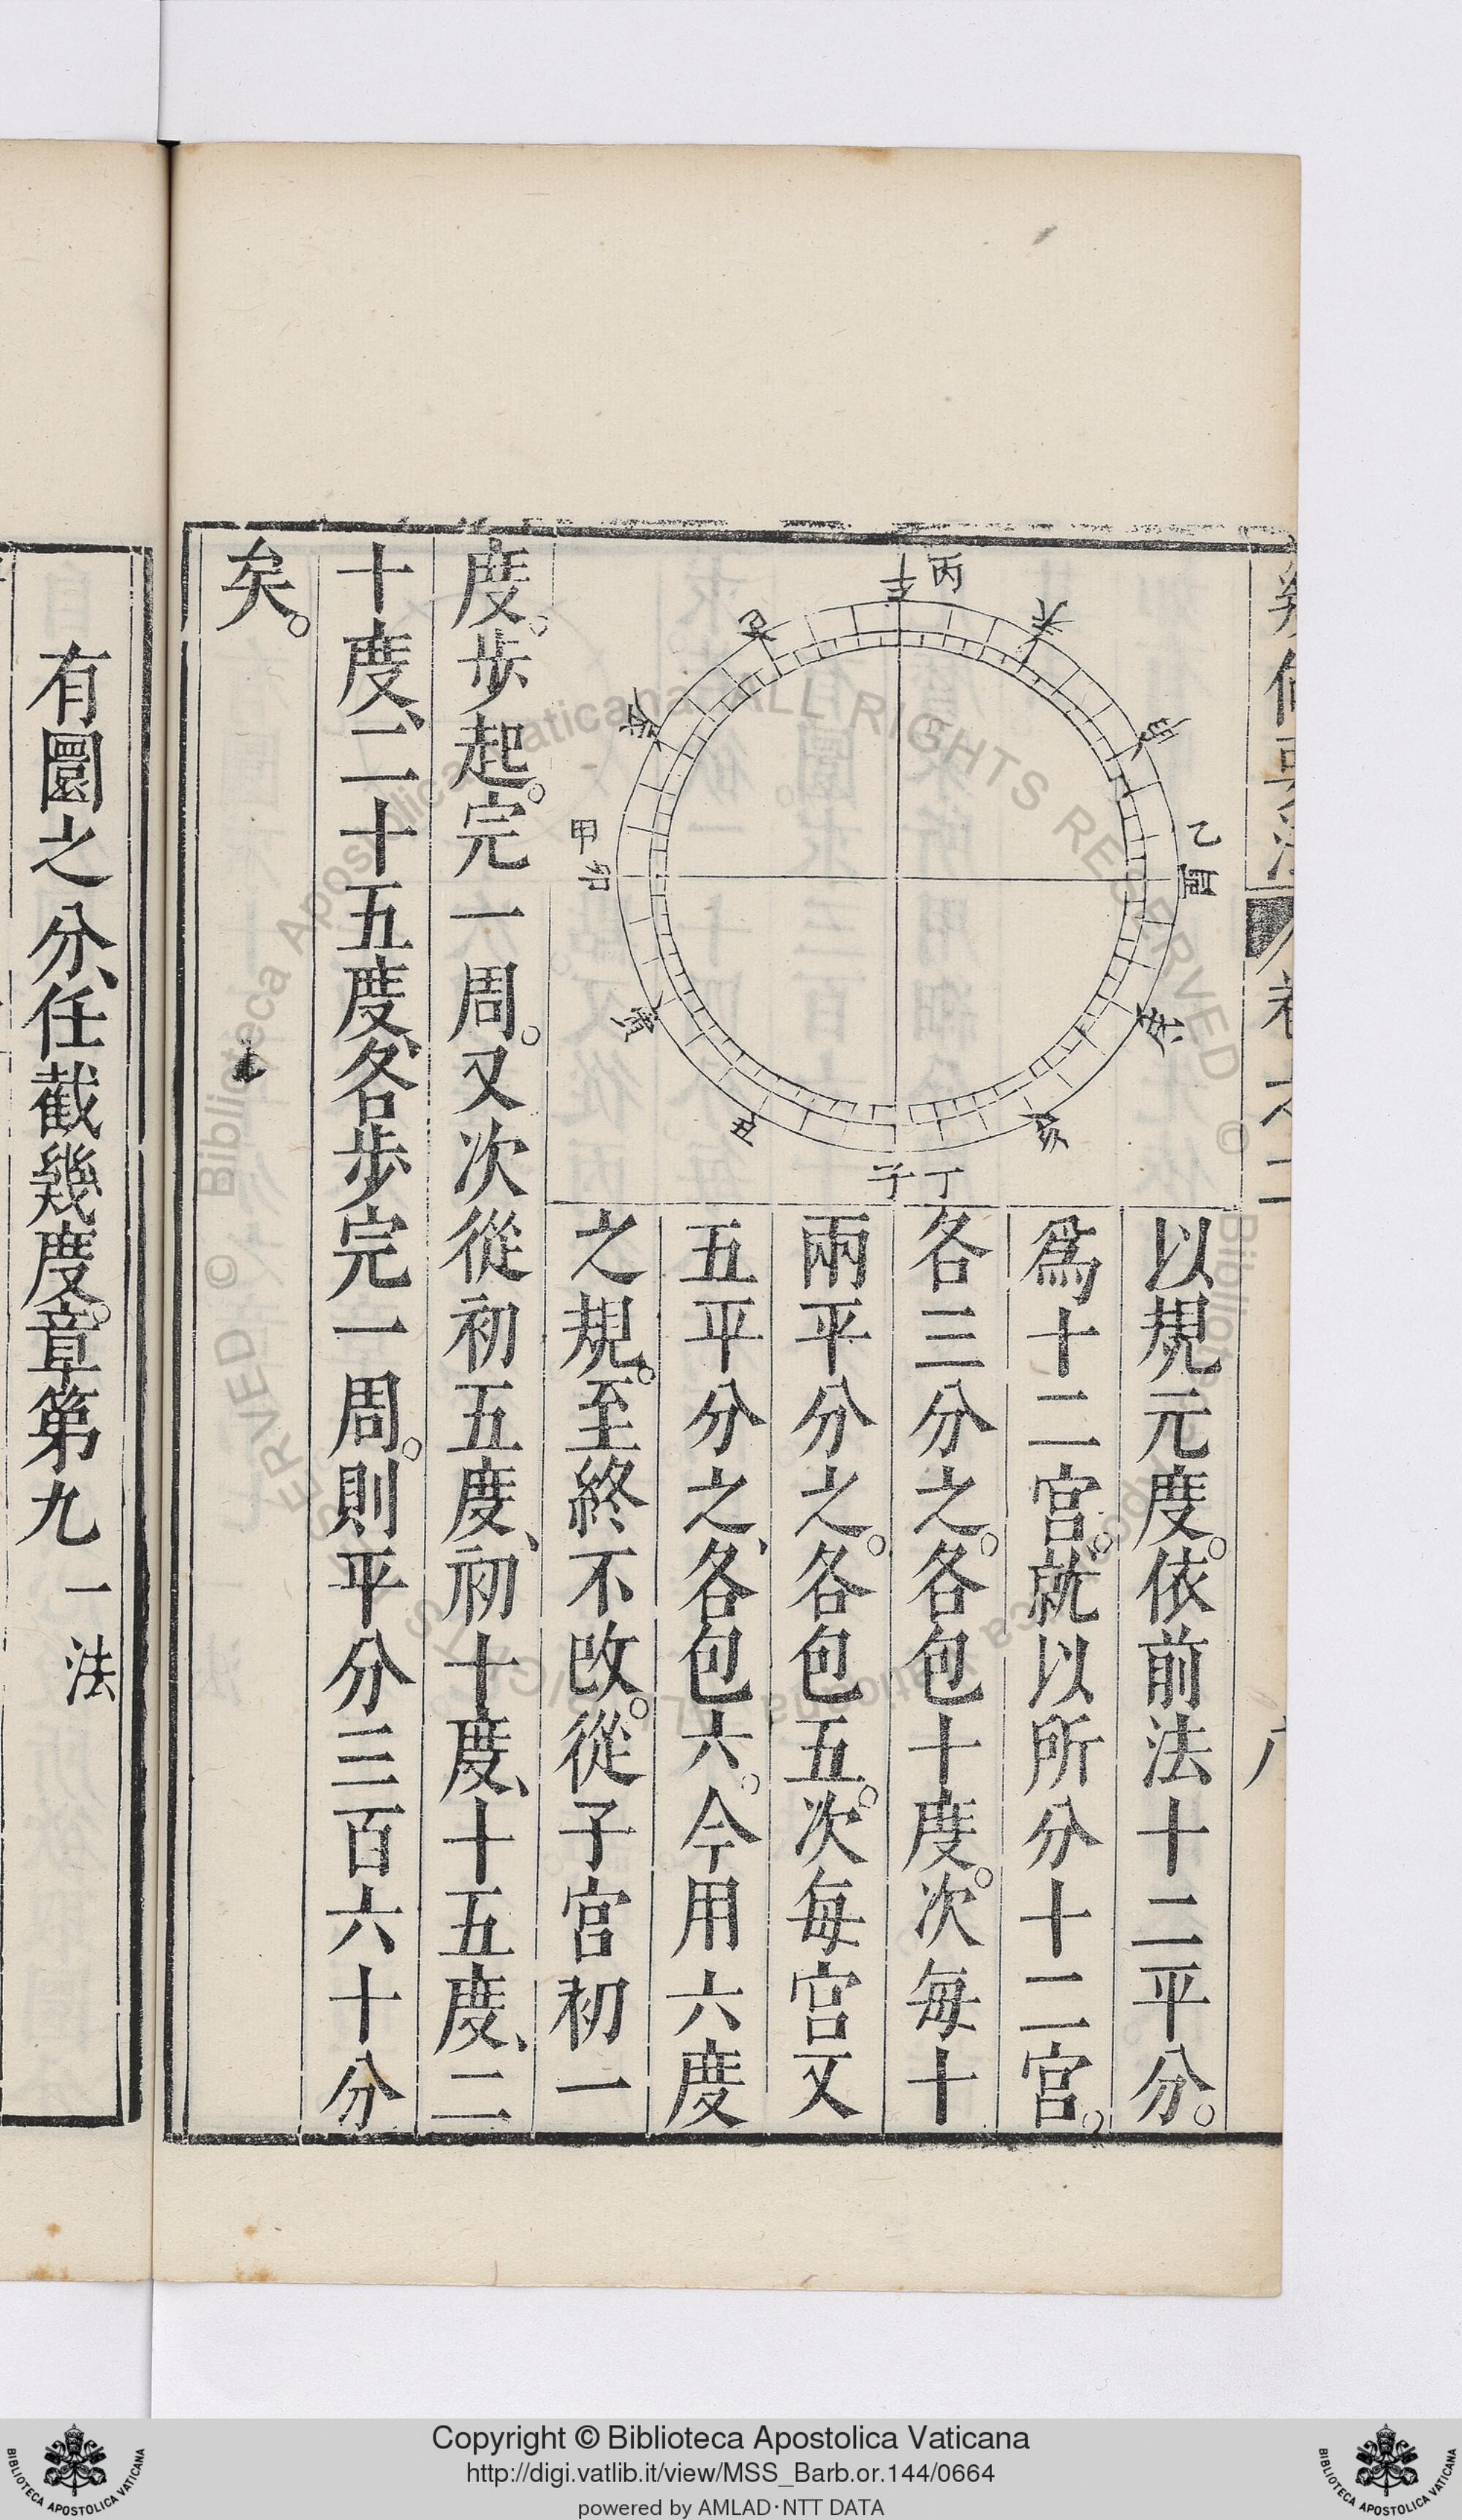 以規元度。依前法十二平分。
爲十二宮。就以所分十二宮。
各三分之。各包十度。次每十
兩平分之。各包五。次每宮又
五平分之、各包六。今用六度
之規。至終不改。從子宮初一
度。步起。完一周。又次從初五度、初十度、十五度、二
十度、二十五度、各步完一周。則平分三百六十分
矣。
丙
乙
酉
亥
丁
子
丑
寅
卯
甲
卷六 二
有圜之分、任截幾度。章第九 一法
Copyright © Biblioteca Apostolica Vaticana
http://digi.vatlib.it/view/MSS_Barb.or.144/0664
powered by AMLAD·NTT DATA
BIBLIOTECA APOSTOLICA VATICANA
BIBLIOTECA APOSTOLICA VATICANA